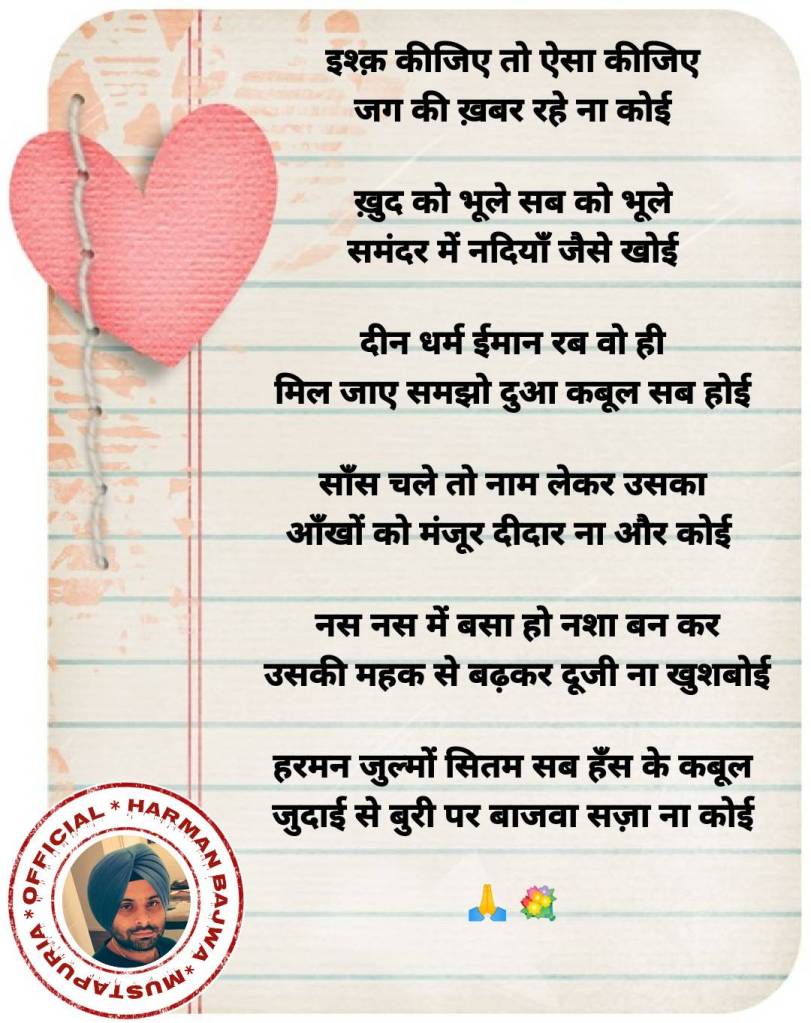 इश्क़ कीजिए तो ऐसा कीजिए
जग की ख़बर रहे ना कोई
ख़ुद को भूले सब को भूले
समंदर में नदियाँ जैसे खोई
दीन धर्म ईमान रब वो ही
मिल जाए समझो दुआ कबूल सब होई
साँस चले तो नाम लेकर उसका
आँखों को मंजूर दीदार ना और कोई
नस नस में बसा हो नशा बन कर
उसकी महक से बढ़कर दूजी ना खुशबोई
हरमन जुल्मों सितम सब हँस के कबूल
जुदाई से बुरी पर बाजवा सज़ा ना कोई
🙏 💐
OFFICIAL * HARMAN BAJWA * MUSTAPURIA *